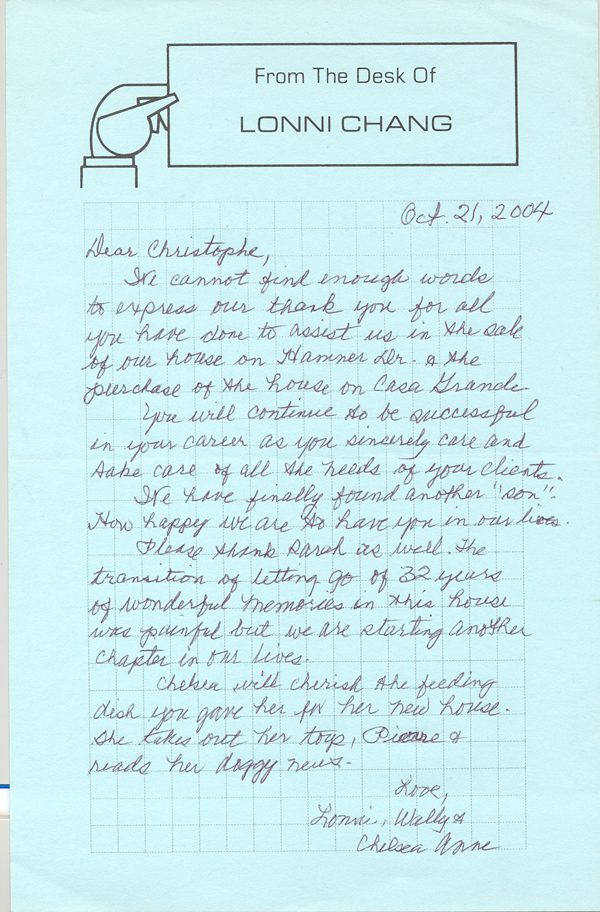 From The Desk Of
LONNI CHANG
Oct. 21, 2004
Dear Christophe,
We cannot find enough words
to express our thank you for all
you have done to assist us in the sale
of our house on Hamner Dr. & the
purchase of the house on Casa Grande
You will continue to be successful
in your career as you sincerely care and
take care of all the needs of your clients.
We have finally found another "son".
How happy we are to have you in our lives.
Please thank Sarah as well. The
transition of letting go of 32 years
of wonderful memories in this house
was painful but we are starting another
chapter in our lives.
Chelsea will cherish the feeding
dish you gave her for her new house.
She takes out her toys, &
reads her doggy news.
Love,
Lonni, Wally &
Chelsea Anne